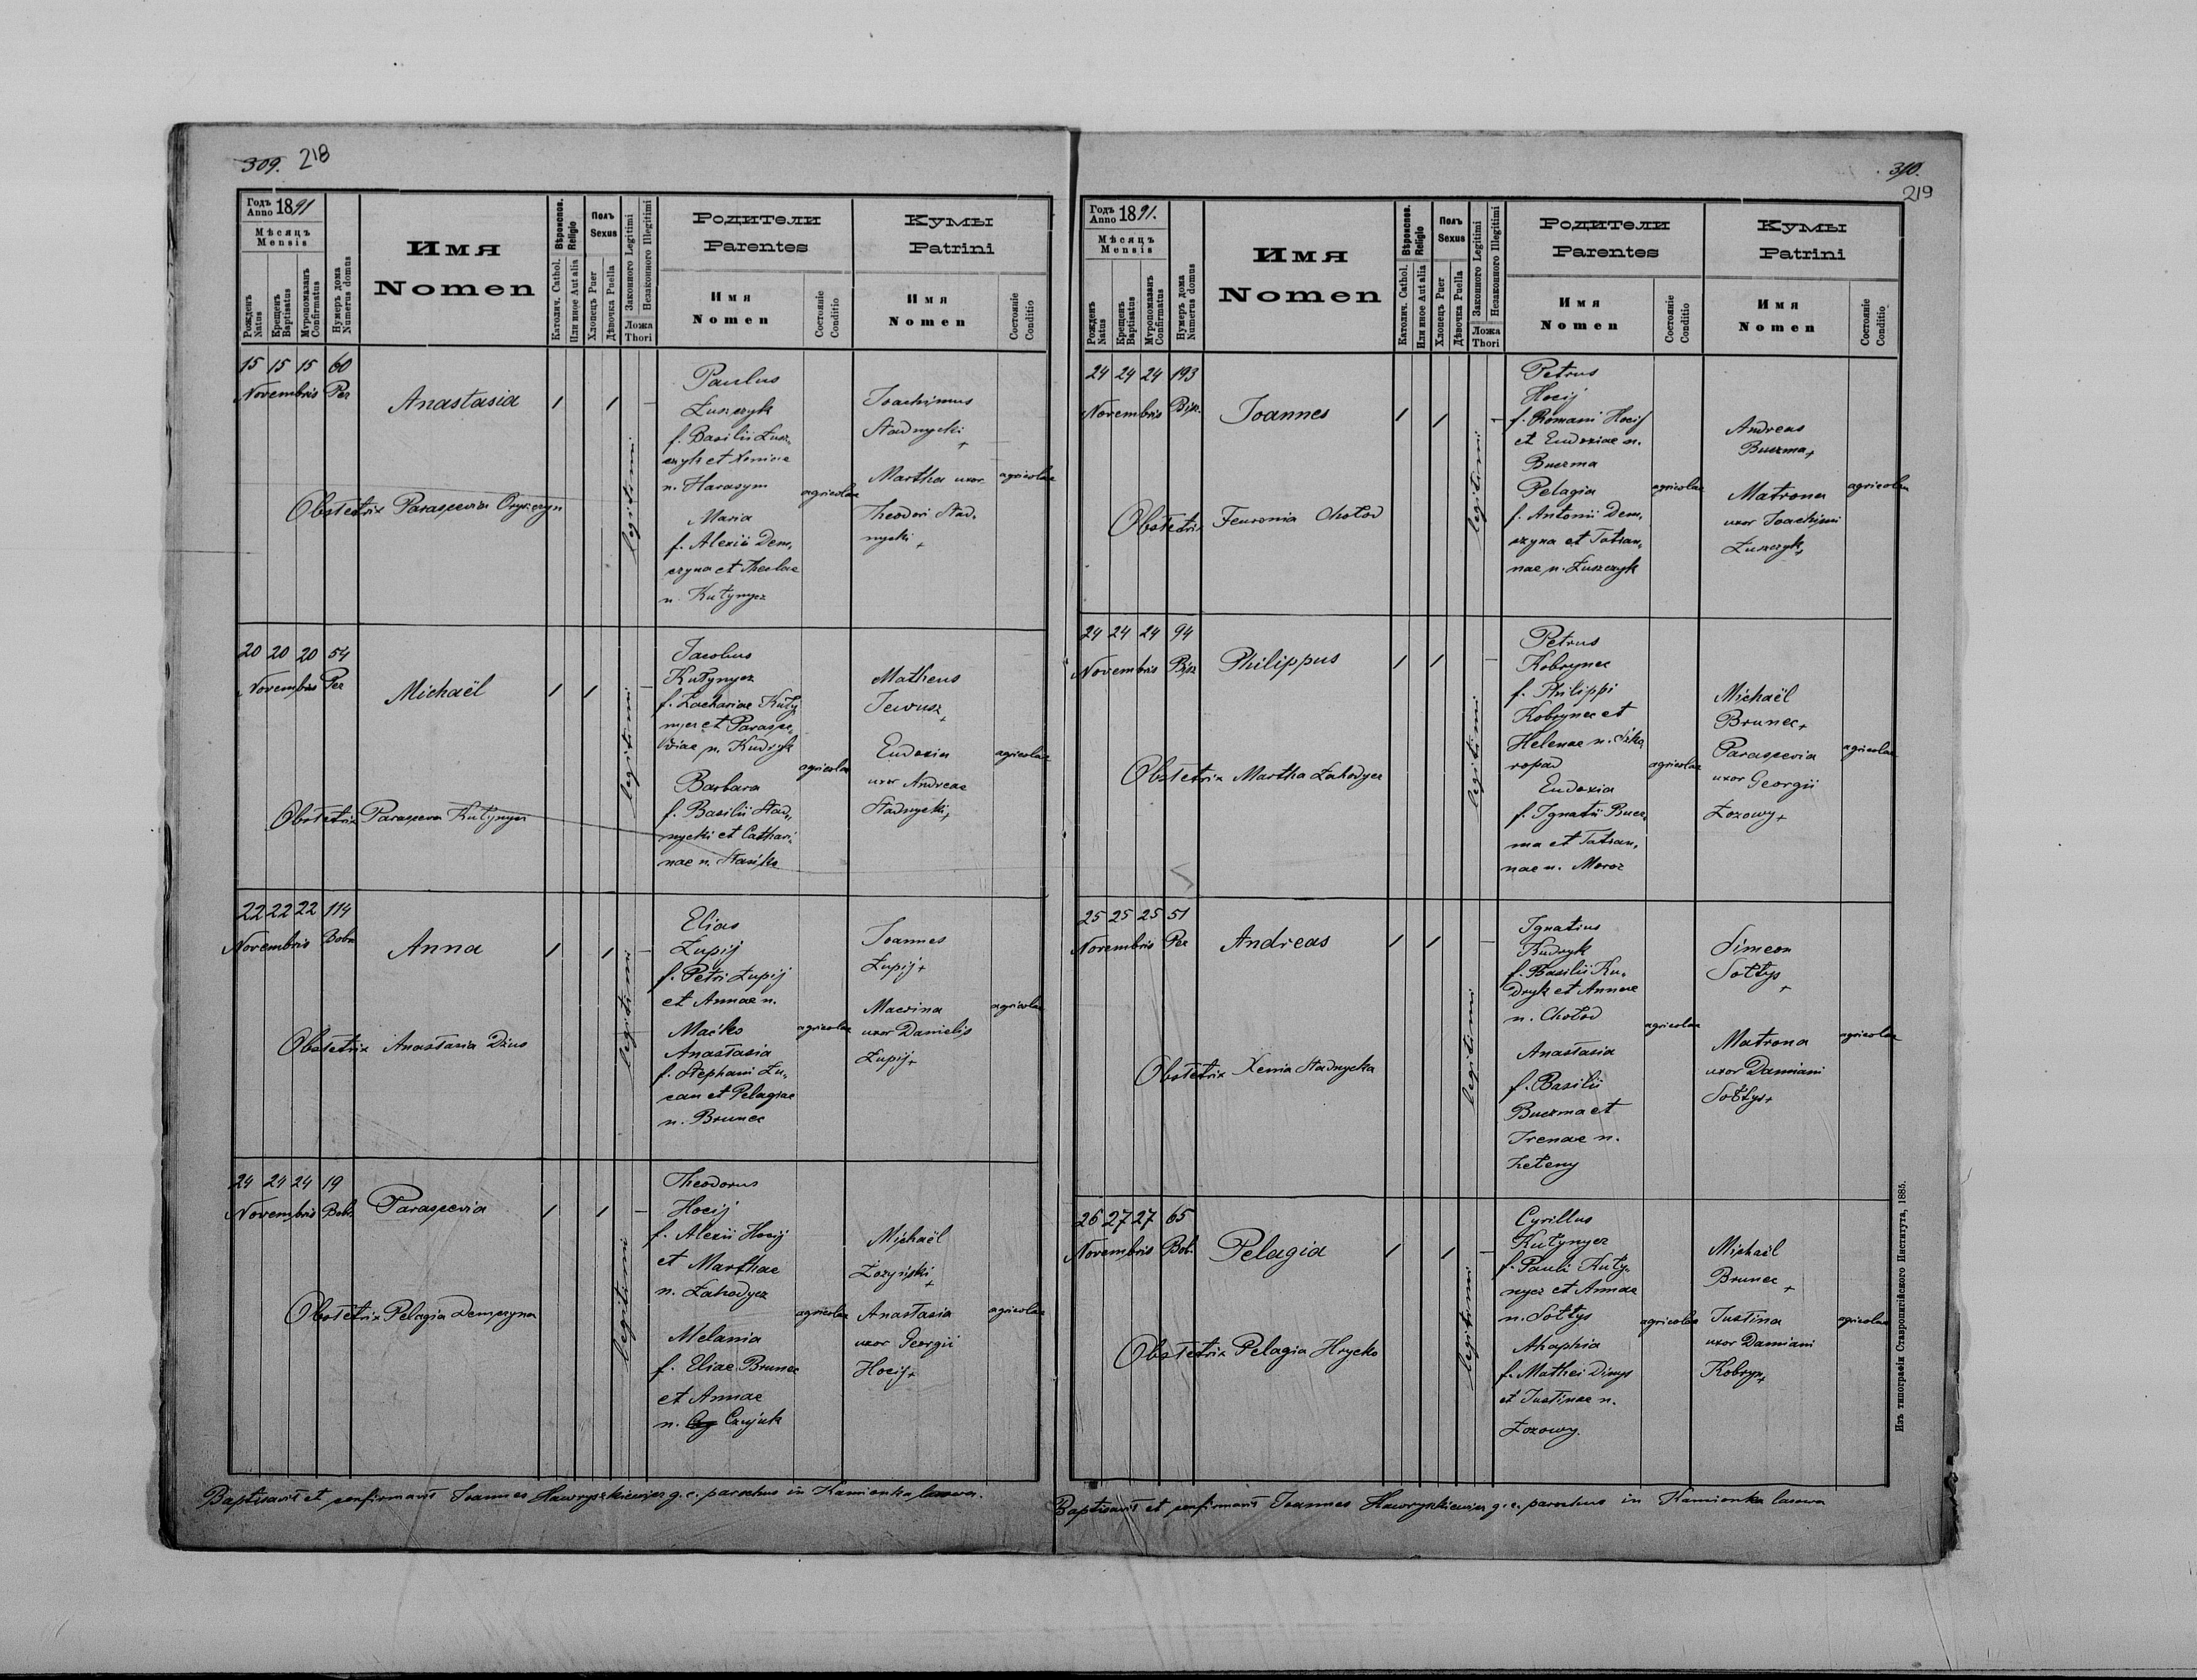 309. 218
Годъ Anno 1891
Мѣсяцъ Mensis
Рожденъ Natus
Крещенъ Baptisatus
Мѵропомазанъ Confirmatus
Нумеръ дома Numerus domus
Имя
Nomen
Вѣроиспов. Religio
Католич. Cathol.
Или иное Aut alia
Полъ Sexus
Хлопецъ Puer
Дѣвочка Puella
Законного Legitimi
Незаконного Illegitimi
Ложа Thori
Родители
Parentes
Имя
Nomen
Состояніе Conditio
Кумы
Patrini
Имя
Nomen
Состояніе Conditio
15 15 15 60
Novembris Per
Anastasia
legitimi
Obstetrix Paraspevia
Paulus
Łuszczyk
f. Basilii Łusz-
czyk et Xeniae
n. Harasym
Maria
f. Alexii Dem-
czyna et Theclae
n. Kutynycz
agricolae
Joachimus
Stadnycki +
Martha uxor
Theodori Stad-
nycki +
agricolae
20 20 20 54
Novembris Per
Michaël
legitimi
Obstetrix Paraspeva Kutynycz
Jacobus
Kutynycz
f. Zachariae Kuty-
nycz et Paraspe-
viae n. Kudryk
Barbara
f. Basilii Stad-
nycki et Cathari-
nae n. Staśko
agricolae
Matheus
Jewusz +
Eudoxia
uxor Andreae
Stadnycki +
agricolae
22 22 22 114
Novembris Bobr
Anna
legitimi
Obstetrix Anastasia Dzius
Elias
Łupij
f. Petri Łupij
et Annae n.
Maćko
Anastasia
f. Stephani Łu-
can et Pelagiae
n. Brunec
agricolae
Joannes
Łupij +
Macrina
uxor Danielis
Łupij +
agricolae
24 24 24 19
Novembris Bobr
Paraspevia
legitimi
Obstetrix Pelagia Demczyna
Theodorus
Hocij
f. Alexii Hocij
et Marthae
n. Zahodycz
Melania
f. Eliae Brunec
et Annae
n. Czujuk
agricolae
Michaël
Łozyński +
Anastasia
uxor Georgii
Hocij +
agricolae
Baptisavit et confirmavit Joannes Hawryszkiewicz g. c. parochus in Kamionka lasowa.
310.
219
Годъ Anno 1891.
Мѣсяцъ Mensis
Рожденъ Natus
Крещенъ Baptisatus
Мѵропомазанъ Confirmatus
Нумеръ дома Numerus domus
Имя
Nomen
Вѣроиспов. Religio
Католич. Cathol.
Или иное Aut alia
Полъ Sexus
Хлопецъ Puer
Дѣвочка Puella
Законного Legitimi
Незаконного Illegitimi
Ложа Thori
Родители
Parentes
Имя
Nomen
Состояніе Conditio
Кумы
Patrini
Имя
Nomen
Состояніе Conditio
24 24 24 193
Novembris Bip.
Joannes
legitimi
Obstetrix Feuronia Chołod
Petrus
Hocij
f. Romani Hocij
et Eudoxiae n.
Buczma
Pelagia
f. Antonii Dem-
czyna et Tatian-
nae n. Łuszczyk
agricolae
Andreas
Buczma +
Matrona
uxor Joachimi
Łuszczyk +
agricolae
24 24 24 94
Novembris Bip
Philippus
legitimi
Obstetrix Martha Zahodycz
Petrus
Kobrynec
f. Philippi
Kobrynec et
Helenae n. Szka-
ropad
Eudoxia
f. Ignatii Bucz-
ma et Tatian-
nae n. Moroz
agricolae
Michaël
Brunec +
Paraspevia
uxor Georgii
Łozowy +
agricolae
25 25 25 51
Novembris Per
Andreas
legitimi
Obstetrix Xenia Stadnycka
Ignatius
Kudryk
f. Basilii Ku-
dryk et Annae
n. Chołod
Anastasia
f. Basilii
Buczma et
Irenae n.
Zełeny
agricolae
Simeon
Sołtys +
Matrona
uxor Damiani
Sołtys +
agricolae
26 27 27 65
Novembris Bob.
Pelagia
legitimi
Obstetrix Pelagia Hrycko
Cyrillus
Kutynycz
f. Pauli Kuty-
nycz et Annae
n. Sołtys
Ahaphia
f. Mathei Dinys
et Justinae n.
Łozowy.
agricolae
Michaël
Brunec +
Justina
uxor Damiani
Kobryn +
agricolae
Baptisavit et confirmavit Joannes Hawryszkiewicz g. c. parochus in Kamionka lasowa
Изъ типографіи Ставропигійского Института, 1885.